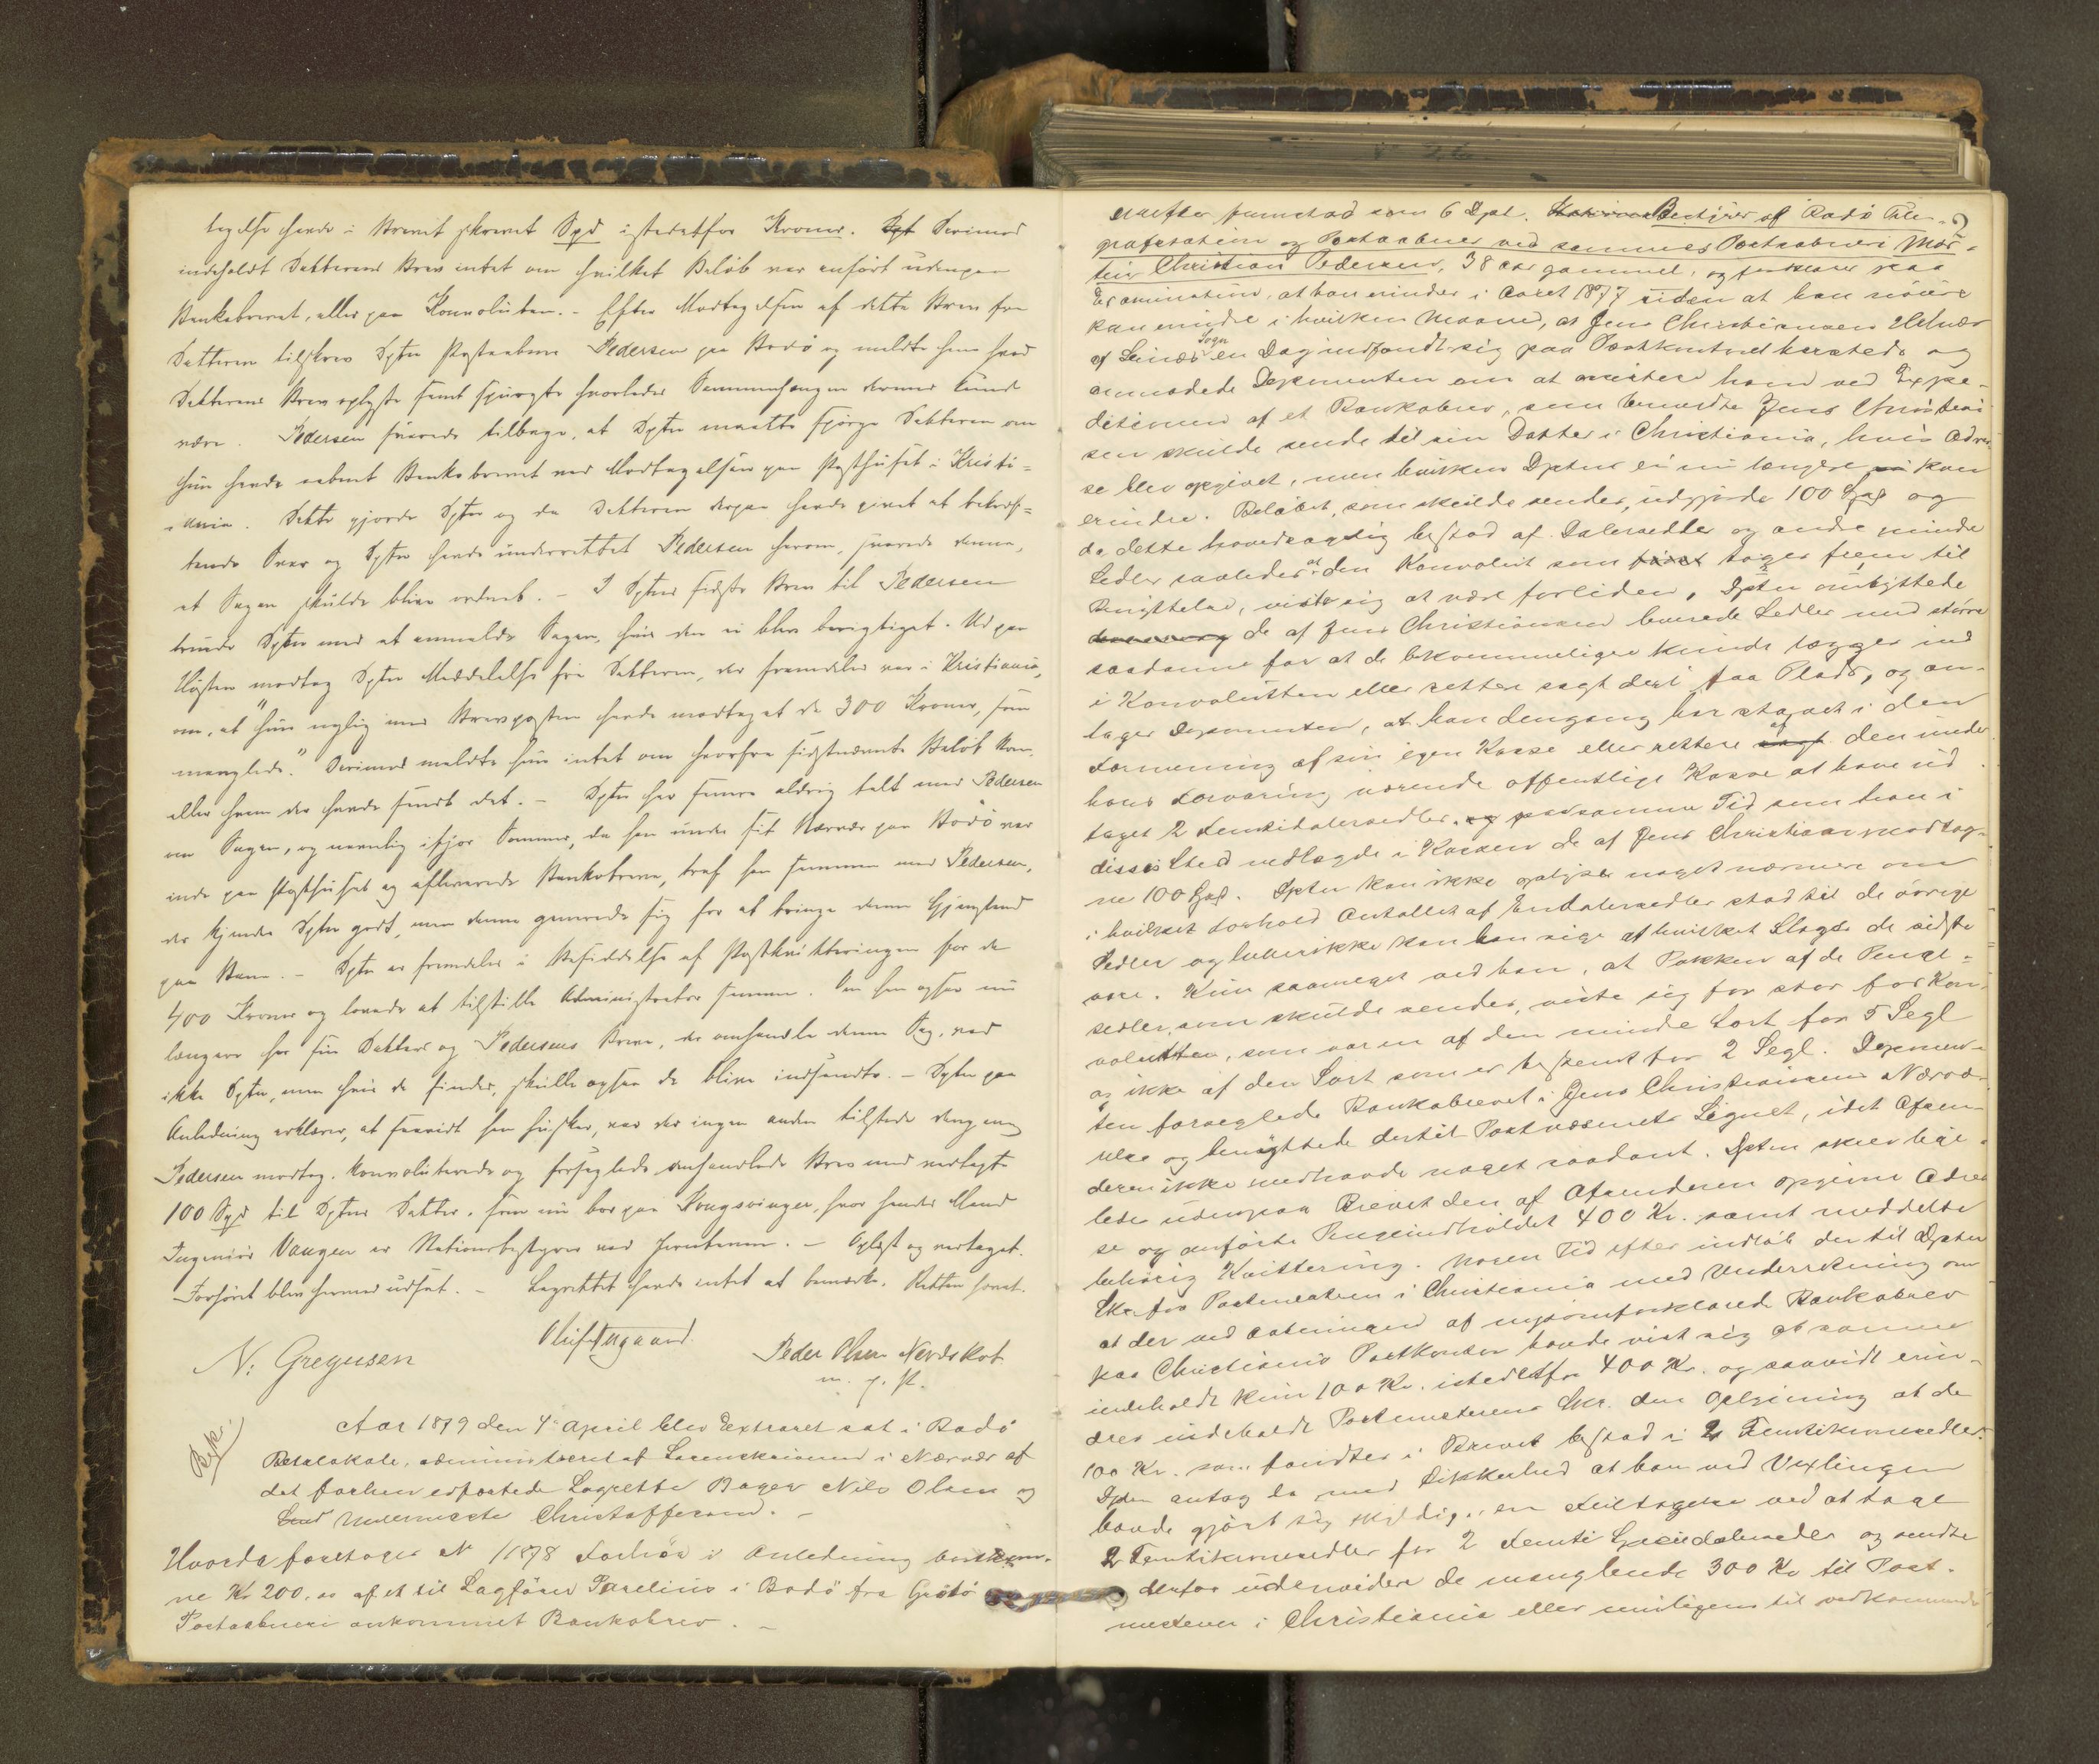 tagelse havde i Brevet skrevet Spd istedetfor Kroner. Dpt Derimod
indeholdt Datterens Brev intet om hvilket Beløb var anført udenpaa
Bankobrevet, eller paa Konvoluten. - Efter Modtagelsen af dette Brev fra
Datteren tilskrev Dptn Postaabner Pedersen paa Bodø og meldte ham hvad
Datterens Brev oplyste samt spurgte hvorledes Sammenhængen dermed kunde
være. Pedersen svarede tilbage, at Dptn maatte spørge Datteren om
hun havde aabnet Bankobrevet ved Modtagelsen paa Posthuset i Kristi=
ania. Dette gjorde Dptn og da Datteren derpaa havde givet et bekræf=
tende Svar og Dptn havde underrettet Pedersen herom, svarede denne,
at Sagen skulde blive ordnet. - I Dptns sidste Brev til Pedersen
truede Dptn med at anmelde Sagen, hvis den ei blev berigtiget. Ud paa
Høsten modtog Dptn Meddelelse fra Datteren, der fremdeles var i Kristiania,
om, at "hun nylig med Brevposten havde modtaget de 300 Kroner, som
manglede." Derimod meldte hun intet om hvorfra sidstnævnte Beløb kom
eller hvem der havde sendt det. - Dptn har senere aldrig talt med Pedersen
om Sagen, og navnlig ifjor Sommer, da han under sit Nærvær paa Bodø var
inde paa Posthuset og afleverede Bankobreve, traf han sammen med Pedersen,
der kjendte Dptn godt, men denne generede sig for at bringe denne Gjenstand
paa Bane. - Dptn er fremdeles i Besiddelse af Postkvitteringen for de
400 Kroner og lovede at tilstille Administrator samme. Om han ogsaa nu
længere har sin Datters og Pedersens Breve, der omhandle denne Sag, ved
ikke Dptn, men hvis de findes, skulle ogsaa de blive indsendte. - Dptn paa
Anledning erklærer, at saavidt han husker, var der ingen anden tilstede dengang
Pedersen modtog, konvoluterede og forseglede omhandlede Brev med vedlagte
100 Spd til Dptns Datter, som nu bor paa Kongsvinger, hvor hendes Mand
Ingeniør Vangen er Stationsbestyrer ved Jernbanen. - Oplæst og vedtaget.
Forhøret blev hermed udsat. - Lagrettet havde intet at bemærke. Retten hævet.
N. Gregusen
Oluf Aagaard
Peder Olsen Nevdskot
m. p. P.
Aar 1879 den 4 April blev Extraret sat i Bodø
Retslokale, administreret af Sorenskriveren i Nærvær af
det forhen edfæstede Lagrette Bager Nils Olsen og
Murermester Christoffersen. -
Hvorda foretoges № /1878 Forhør i Anledning bortkom-
ne Kr 200.00 af et til Sagfører Parelius i Bodø fra Grøtø
Postaabneri ankommet Bankobrev. -
derefter fremstod som 6 Dpt. Bestyrer af Bodø Tele-
grafstation og Postaabner ved sammes Postaabneri Mor-
ten Christian Pedersen, 38 aar gammel, og forklarer paa
Examination, at han erindrer i Aaret 1877 uden at han nøiere
kan erindre i hvilken Maaned, at Jens Christiansen Helnæs
af Leinæs Sogn en Dag indfandt sig paa Postkontoret herstede og
anmodede Deponenten om at assistere ham ved Expe-
ditionen af et Bankobrev, som benævnte Jens Christian-
sen skulde sende til sin Datter i Christiania, hvis Adres-
se blev opgivet, men hvilken Dptnen ei nu længere kan
erindre. Beløbet, som skulde sendes, udgjorde 100 Spd og
da dette hovedsagelig bestod af Dalersedler og andre mindre
Sedler saaledes at den Konvolut som først toges frem til
Benyttelse, viste sig at være forliden, Dptn ombyttede
de af Jens Christiansen leverede Sedler med større
saadanne for at de bekvemmeligere kunde lægges ind
i Konvolutten eller rettere sagt deri faa Plads, og an-
tager Deponenten, at han dengang har staaet i den
Formening af sin egen Kasse eller rettere af den under
hans Forvaring værende offentlige Kasse at have ud
taget 2 Femtidalersedler, og paasamme Tid som han i
disses Sted nedlagde i Kassen de af Jens Christiansen modtag-
ne 100 Spd. Dptn kan ikke oplyse noget nærmere om
i hvilket Forhold Antallet af Endalersedler stod til de øvrige
Sedler og heller ikke kan han sige af hvilket Slags de sidste
vare. Kun saameget ved han, at Pakken af de Penge=
sedler, som skulde sendes, viste sig for stor for Kon-
volutten, som var en af den mindre Sort for 5 Segl
og ikke af den Sort som er bestemt for 2 Segl. Deponen-
ten forseglede Bankobrevet i Jens Christiansens Nærvæ-
relse og benyttede dertil Postvæsenets Signet, idet Afsen-
deren ikke medhavde noget saadant. Dptn skrev lige-
ledes udenpaa Brevet den af Afsenderen opgivne Adres
se og anførte Pengeindholdet 400 Kr. samt meddelte
behørig Kvittering. Nogen Tid efter indløb der til Dptn
Skr. fra Postmesteren i Christiania med Underretning om
at der ved Aabningen af nysomforklarede Bankobrev
paa Christiania Postkontor havde vist sig at samme
indeholdt kun 100 Kr. istedetfor 400 Kr. og saavidt erin-
dres indeholdt Postmesterens Skr. den Oplysning at de
100 Kr. som fandtes i Brevet bestod i 2 Femtikronesedler.
Dptn antog da med Sikkerhed at han ved Vexlingen
havde gjort sig skyldig i en Feiltagelse ved at tage
2 Femtikronesedler for 2 Femti Speciedalersedler og sendte
derfor uden videre de manglende 300 Kr til Post-
mesteren i Christiania eller muligens til vedkommende